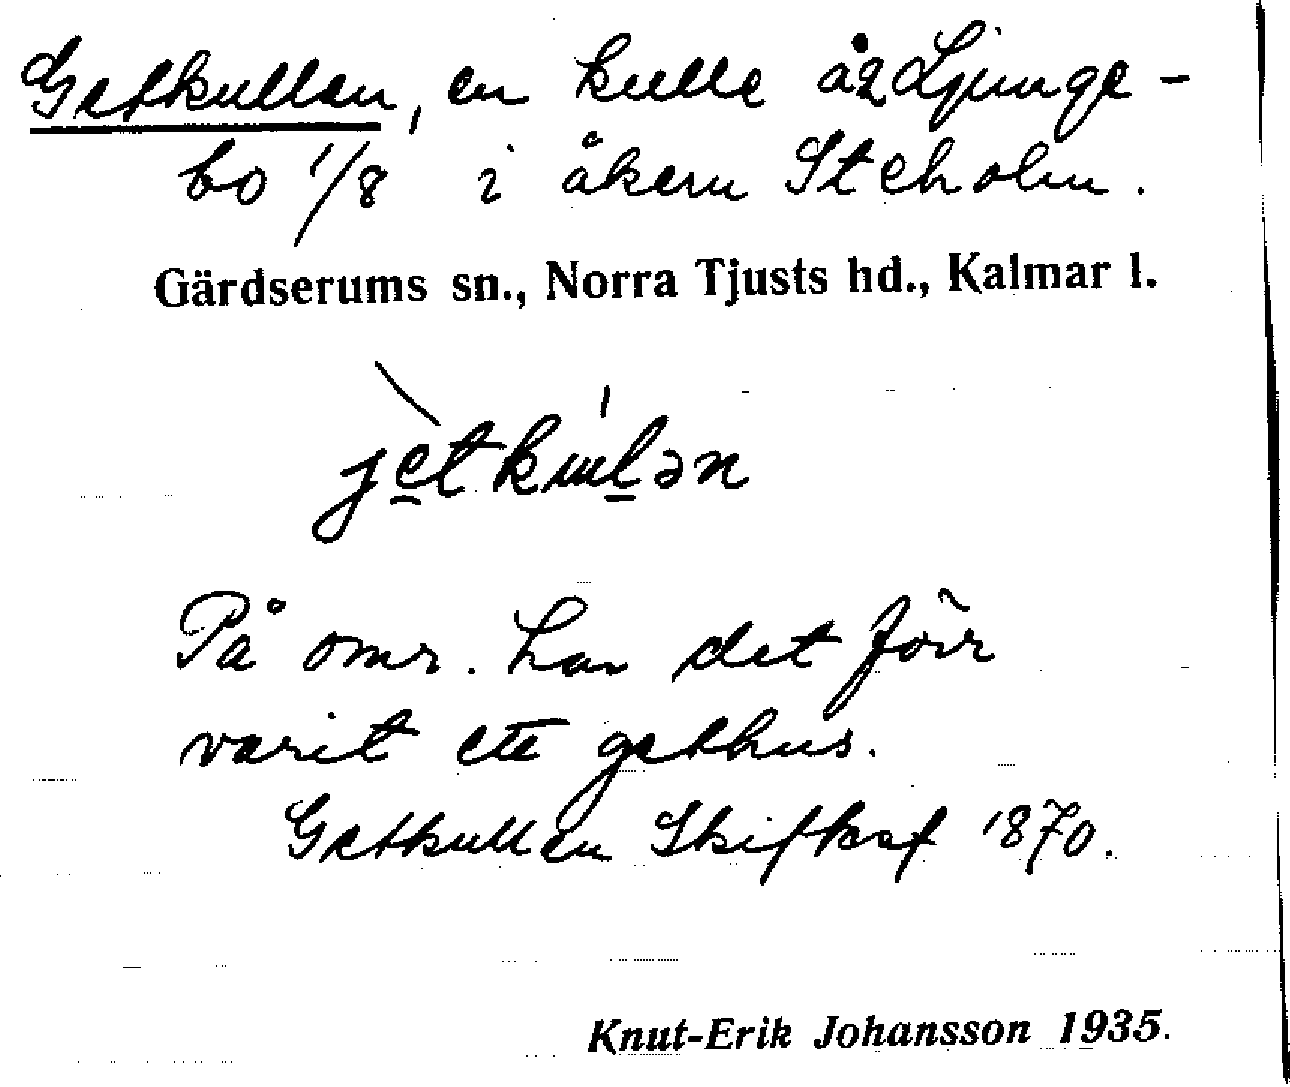 Getkullen, en kulle å Ljunge-
bo 1/8 i åkern Steholm.
Gärdserums sn., Norra Tjusts hd., Kalmar l.
På omr. har det förr
varit ett gethus.
Getkullen Skifksf 1870.
Knut-Erik Johansson 1935.